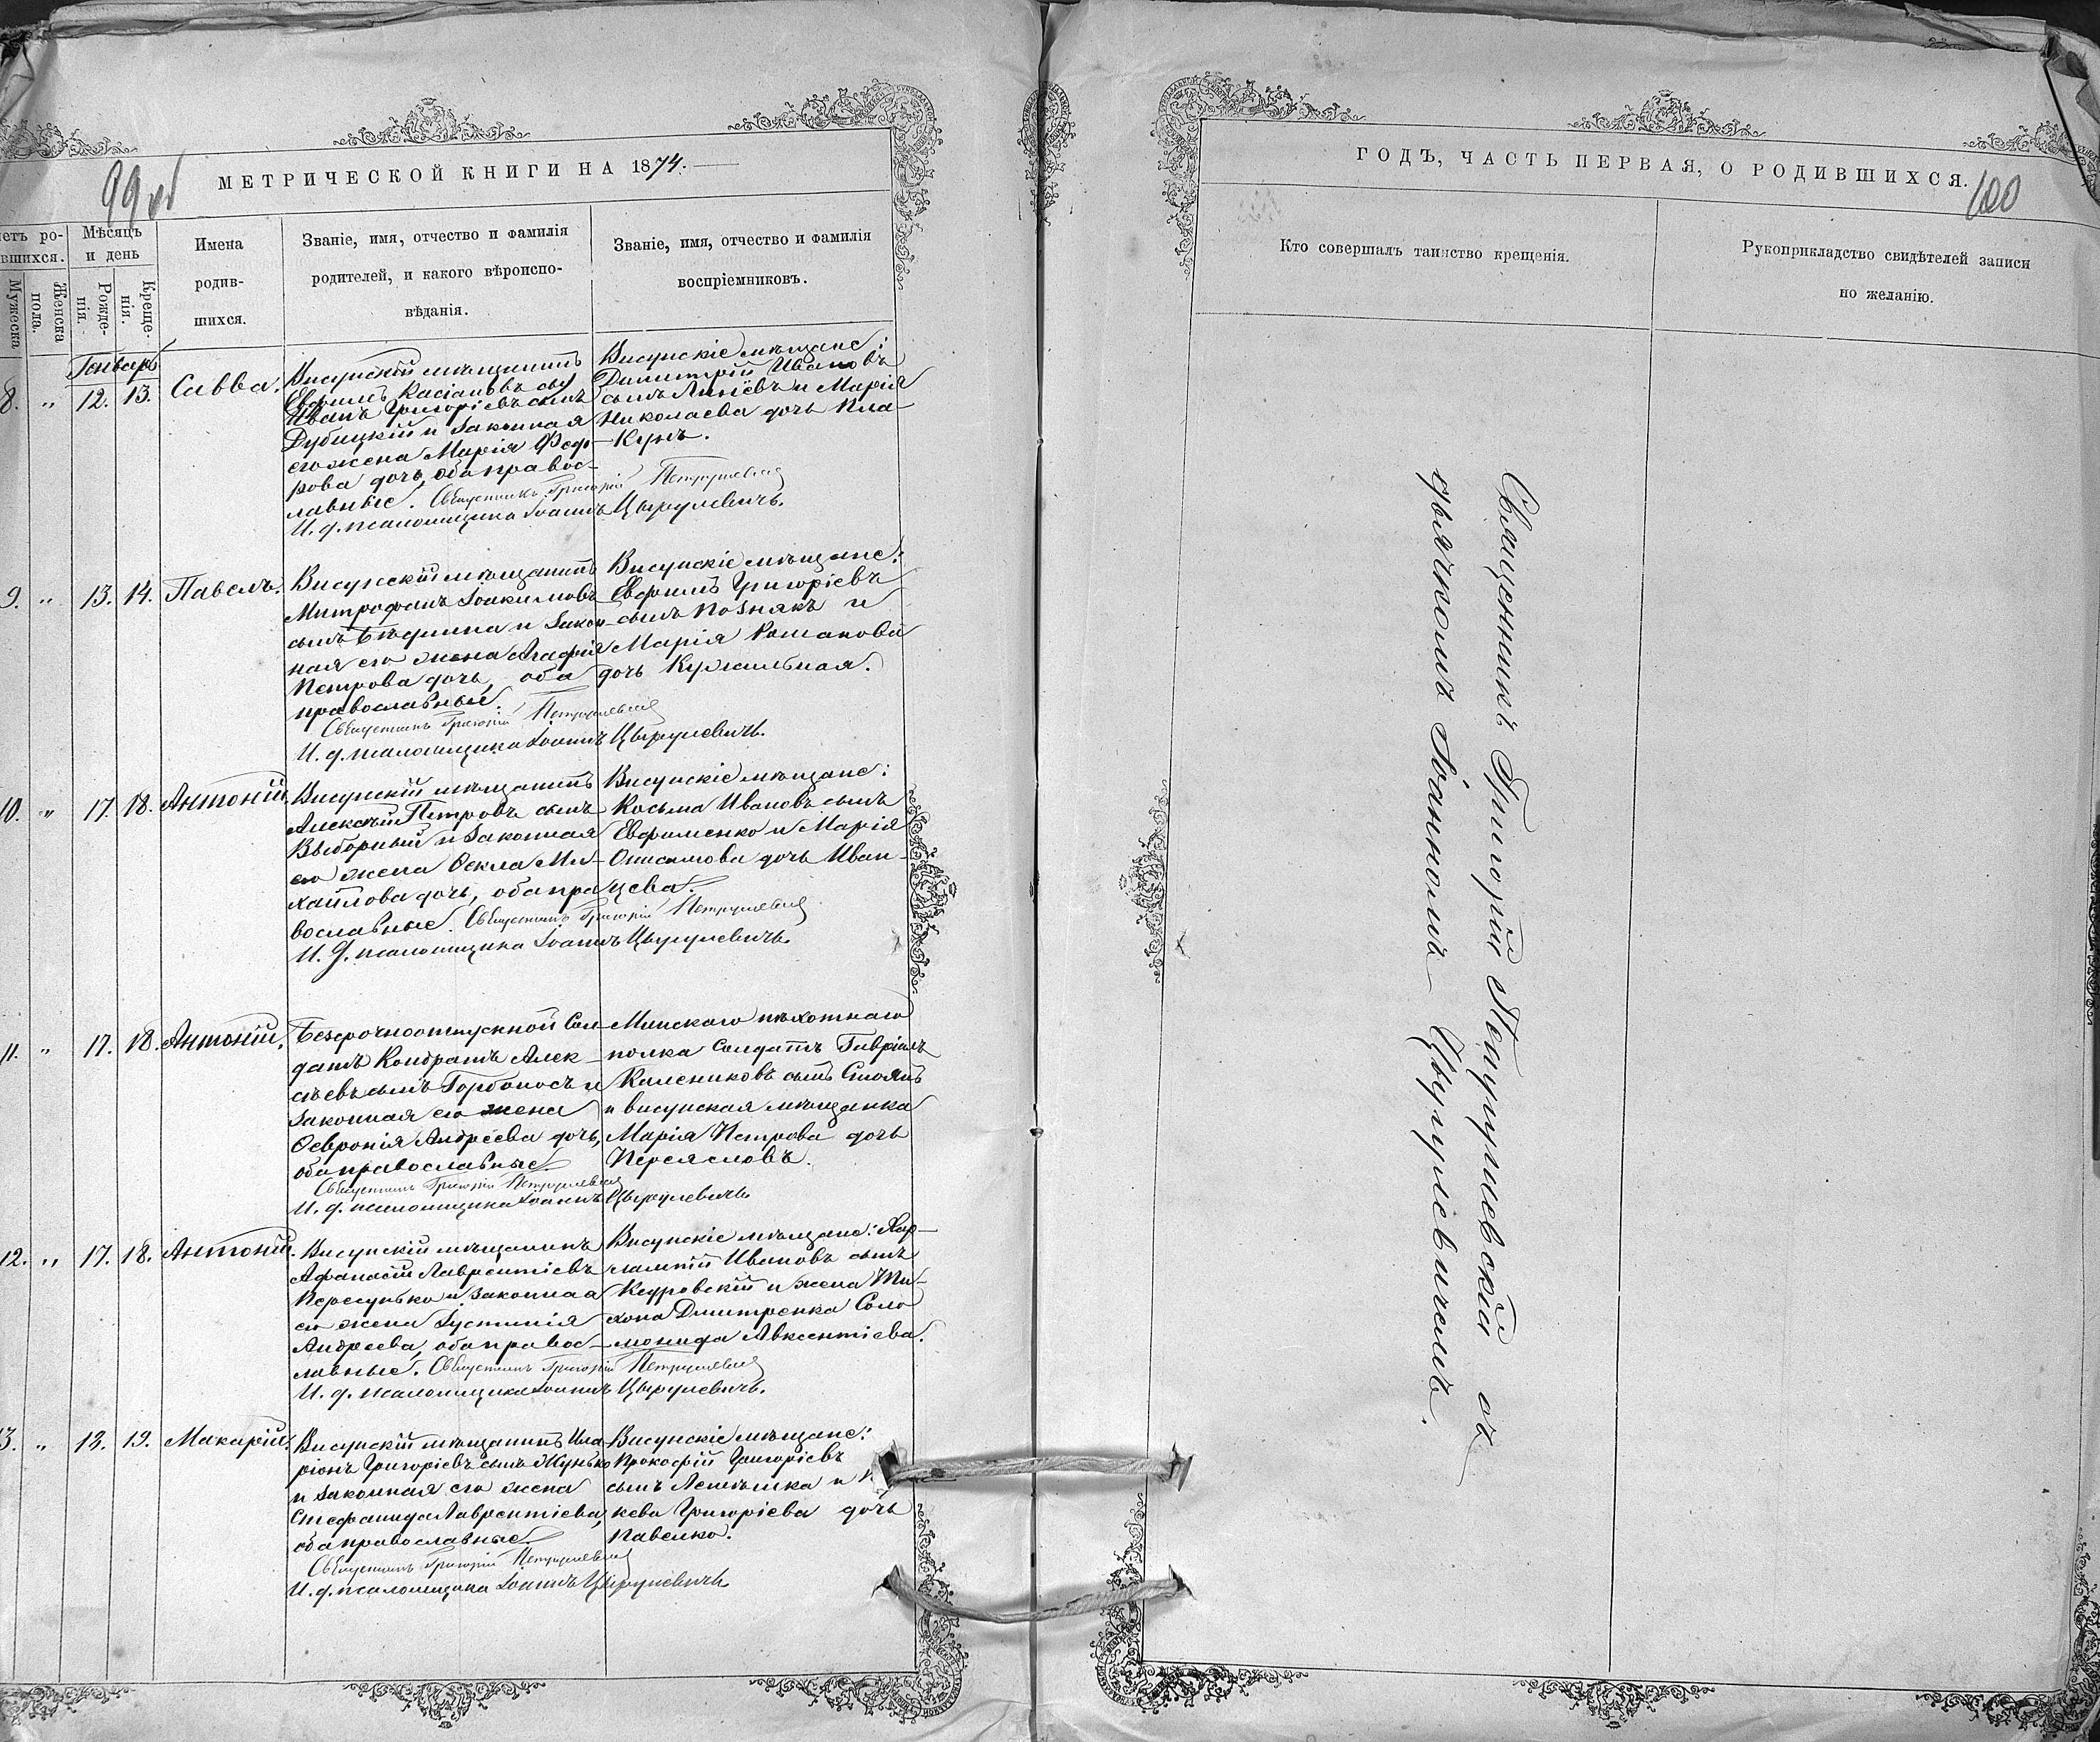 99 об
МЕТРИЧЕСКОЙ КНИГИ НА 1874.
етъ ро-
вшихся.
Мужеска
Женска
пола.
Мѣсяцъ
и день
Рожде-
нія.
Креще-
нія.
Имена
родив-
шихся.
Званіе, имя, отчество и фамилія
родителей, и какого вѣроиспо-
вѣданія.
Званіе, имя, отчество и фамилія
воспріемниковъ.
Январь
8. „ 12. 13. Савва.
Висунскій мѣщанинъ
Евфимъ Касіановъ
Иванъ Григорьевъ сынъ
Дубицкій и законная
его жена Марія Федо-
рова дочь, оба правос-
лавные. Священникъ Григорій Петрушевскій
И. д. псаломщика Іоаннъ Цырулевичъ.
Висунскіе мѣщане:
Димитрій Ивановъ
сынъ и Марія
Николаева дочь Кла-
Кунъ.
9. „ 13. 14. Павелъ.
Висунскій мѣщанинъ
Митрофанъ Іоакимовъ
сынъ Бѣдрина и закон-
ная его жена Агафія
Петрова дочь, оба
православныи.
Священникъ Григорій Петрушевскій
И. д. псаломщика Іоаннъ Цырулевичъ.
Висунскіе мѣщане:
Евфимъ Григоріевъ
сынъ Познякъ и
Марія Романова
дочь Кужильная.
10. „ 17. 18. Антоній.
Висунскій мѣщанинъ
Алексѣй Петровъ сынъ
Выборный и законная
его жена Ѳекла Ми-
хайлова дочь, оба пра-
вославные. Священникъ Григорій Петрушевскій
И. д. псаломщика Іоаннъ Цырулевичъ.
Висунскіе мѣщане:
Косьма Ивановъ сынъ
Евфименко и Марія
Онисимова дочь Иван-
цева.
11. „ 17. 18. Антоній.
Безсрочноотпускной Сол-
датъ Кондратъ Алек-
сѣевъ сынъ Горбоносъ и
законная его жена
Ѳевронія Андреева дочь,
оба православные.
Священникъ Григорій Петрушевскій
И. д. псаломщика Іоаннъ Цырулевичъ.
Минскаго пѣхотнаго
полка Солдатъ Гавріилъ
Калениковъ сынъ Стоянъ
и висунская мѣщанка
Марія Петрова дочь
Переясловъ.
12. „ 17. 18. Антоній.
Висунскій мѣщанинъ
Афанасій Лаврентіевъ
Пересунько и законная
его жена Іустинія
Андреева, оба правос-
лавные. Священникъ Григорій Петрушевскій
И. д. псаломщика Іоаннъ Цырулевичъ.
Висунскіе мѣщане: Хар-
лампій Ивановъ сынъ
Кедровскій и жена Ти-
хона Дмитренка Соло-
монида Авксентіева.
3. „ 18. 19. Макарій.
Висунскій мѣщанинъ Ила-
ріонъ Григоріевъ сынъ Жунько
и законная его жена
Стефанида Лаврентіева,
оба православные.
Священникъ Григорій Петрушевскій
И. д. псаломщика Іоаннъ Цырулевичъ
Висунскіе мѣщане:
Прокофій Григоріевъ
сынъ и
кева Григоріева дочь
Павелко.
ГОДЪ, ЧАСТЬ ПЕРВАЯ, О РОДИВШИХСЯ.
100
Кто совершалъ таинство крещенія.
Рукоприкладство свидѣтелей записи
по желанію.
Священникъ Григорій Петрушевскій съ
дьячкомъ Іоанномъ Цырулевичемъ.